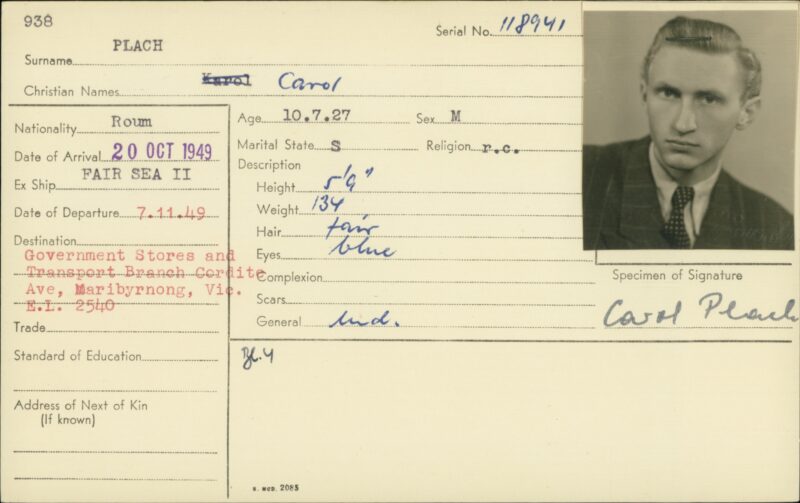 938
Serial No. 118941
PLACH
Surname
Christian Names Karol Carol
Nationality Roum
Date of Arrival 20 OCT 1949
Ex Ship FAIR SEA II
Date of Departure 7.11.49
Destination
Government Stores and
Transport Branch Cordite
Ave, Maribyrnong, Vic.
E.I. 2540
Trade
Standard of Education
Address of Next of Kin
(If known)
Age 10.7.27 Sex M
Marital State S Religion r.c.
Description
Height 5'9"
Weight 134
Hair fair
Eyes blue
Complexion
Scars
General Ind.
Bl.4
Specimen of Signature
Carol Plach
S. MCD. 2085